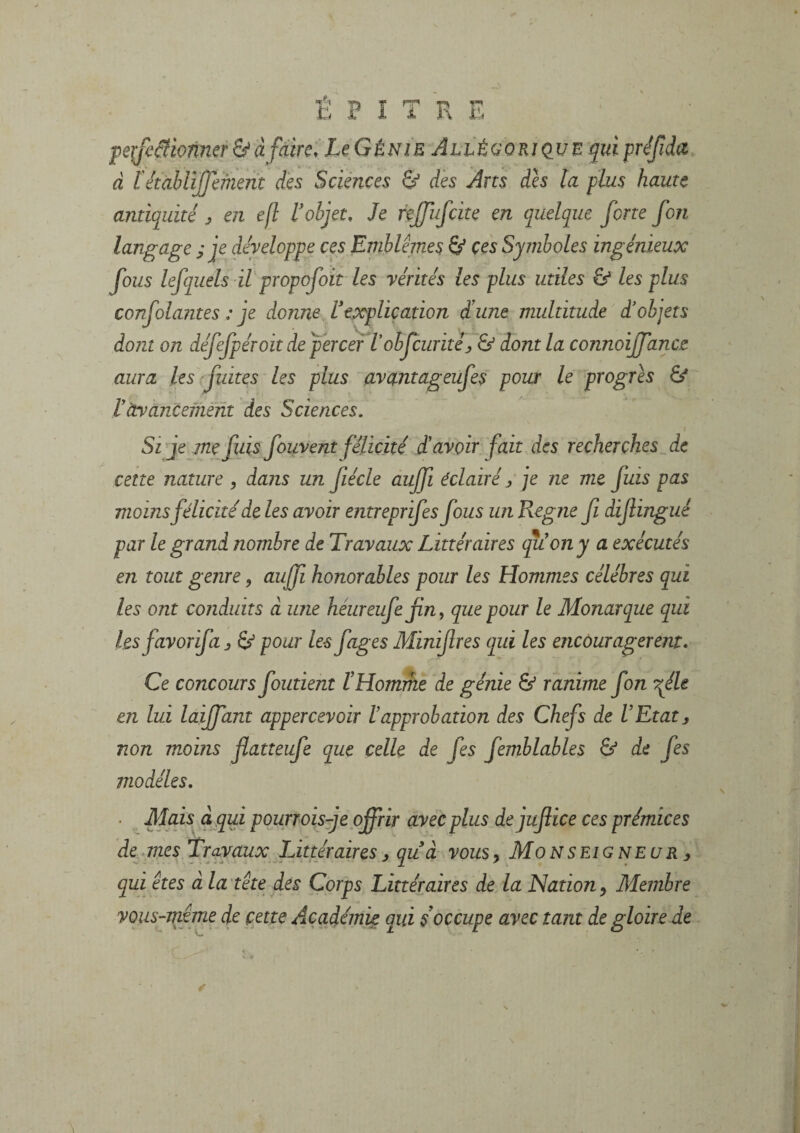 ÉPITRE
perfectionner & à faire. Le GÉNIE ALLÉGORIQUE qui présida
à l'établissement des Sciences & des Arts dès la plus haute
antiquité, en est l'objet. Je ressuscite en quelque sorte son
langage ; je développe ces Emblêmes & ces Symboles ingénieux
sous lesquels il proposoit les vérités les plus utiles & les plus
consolantes : je donne l'explication d'une multitude d'objets
dont on désespéroit de percer l'obscurité, & dont la connoissance
aura les suites les plus avantageuses pour le progrès &
l'avancement des Sciences.
Si je me suis souvent félicité d'avoir fait des recherches de
cette nature, dans un siécle aussi éclairé, je ne me suis pas
moins félicité de les avoir entreprises sous un Regne si distingué
par le grand nombre de Travaux Littéraires qu'on y a exécutés
en tout genre, aussi honorables pour les Hommes célébres qui
les ont conduits à une heureuse fin, que pour le Monarque qui
les favorisa, & pour les sages Ministres qui les encouragerent.
Ce concours soutient l'Homme de génie & ranime son zéle
en lui laissant appercevoir l'approbation des Chefs de l'Etat,
non moins flatteuse que celle de ses semblables & de ses
modéles.
Mais à qui pourrois-je offrir avec plus de justice ces prémices
de mes Travaux Littéraires, qu'à vous, MONSEIGNEUR,
qui êtes à la tête des Corps Littéraires de la Nation, Membre
vous-même de cette Académie qui s'occupe avec tant de gloire de